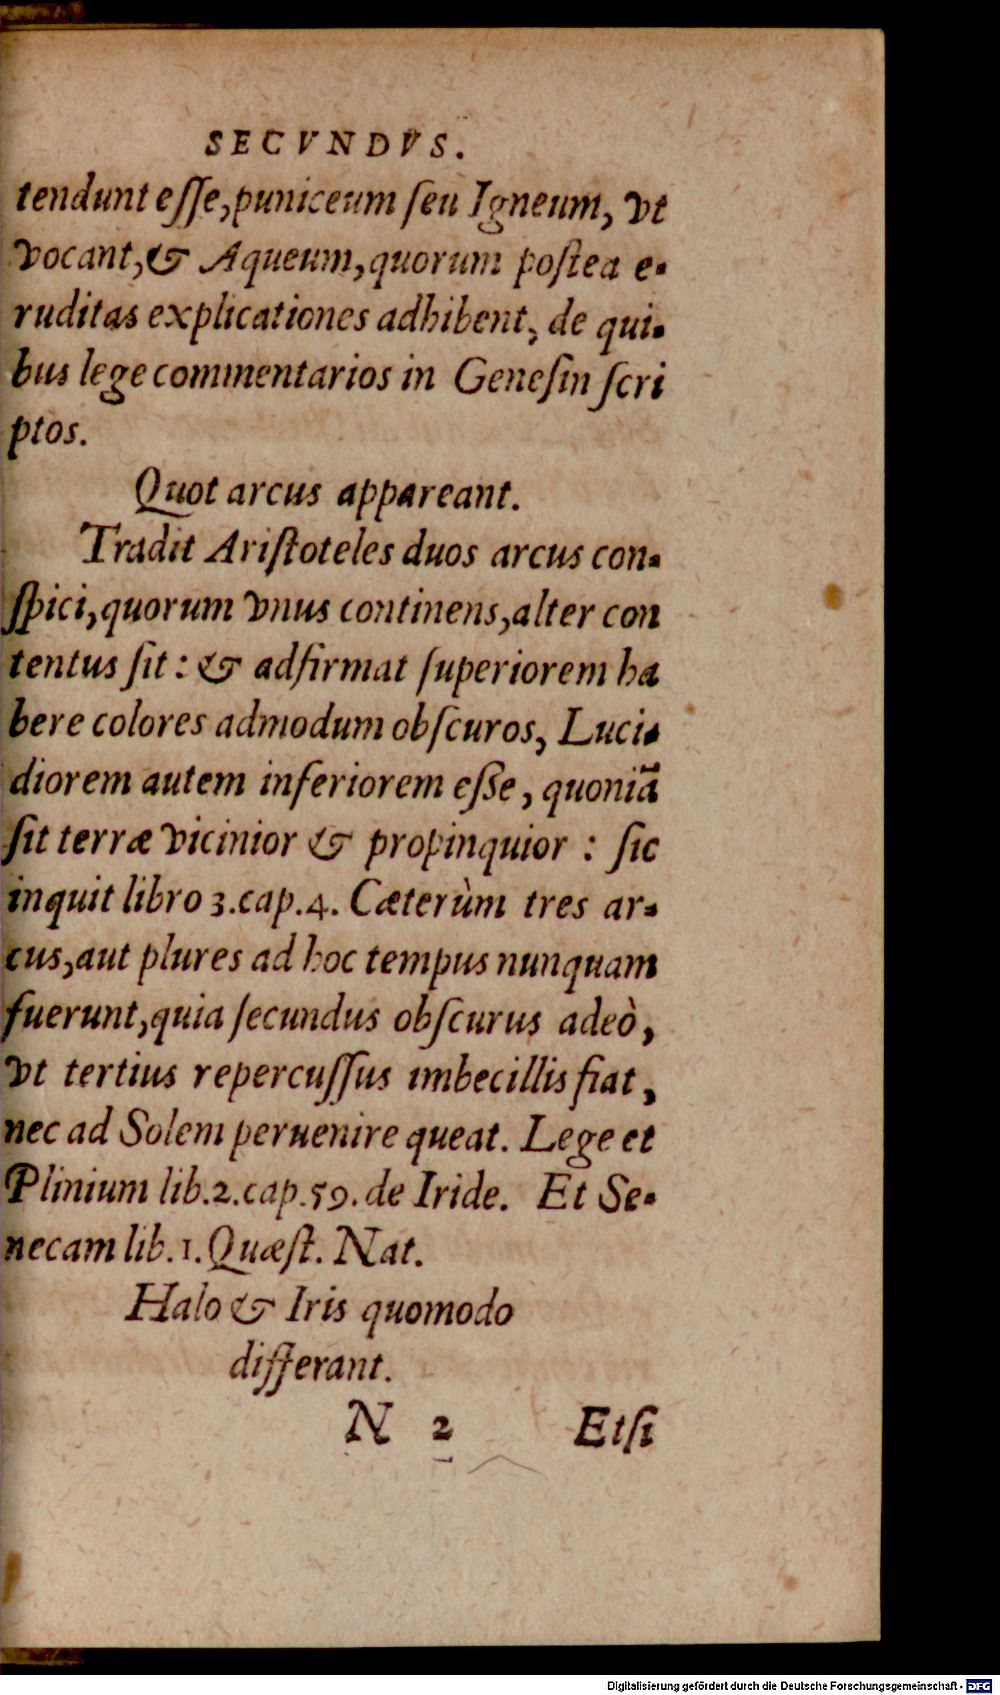 SECVNDVS.
tendunt eſſe, puniceum ſeu Igneum, vt
vocant, & Aqueum, quorum poſtea e-
ruditas explicationes adhibent, de qui-
bus lege commentarios in Geneſin ſcri
ptos.
Quot arcus appareant.
Tradit Ariſtoteles duos arcus con-
ſpici, quorum vnus continens, alter con
tentus ſit: & adfirmat ſuperiorem ha
bere colores admodum obſcuros, Luci-
diorem autem inferiorem eſſe, quoniã
ſit terræ vicinior & propinquior : ſic
inquit libro 3. cap. 4. Cæterùm tres ar-
cus, aut plures ad hoc tempus nunquam
fuerunt, quia ſecundus obſcurus adeò,
vt tertius repercuſſus imbecillis fiat,
nec ad Solem peruenire queat. Lege et
Plinium lib. 2. cap. 59. de Iride. Et Se-
necam lib. 1. Quæſt. Nat.
Halo & Iris quomodo
differant.
N 2 Etſi
Digitalisierung gefördert durch die Deutsche Forschungsgemeinschaft - DFG